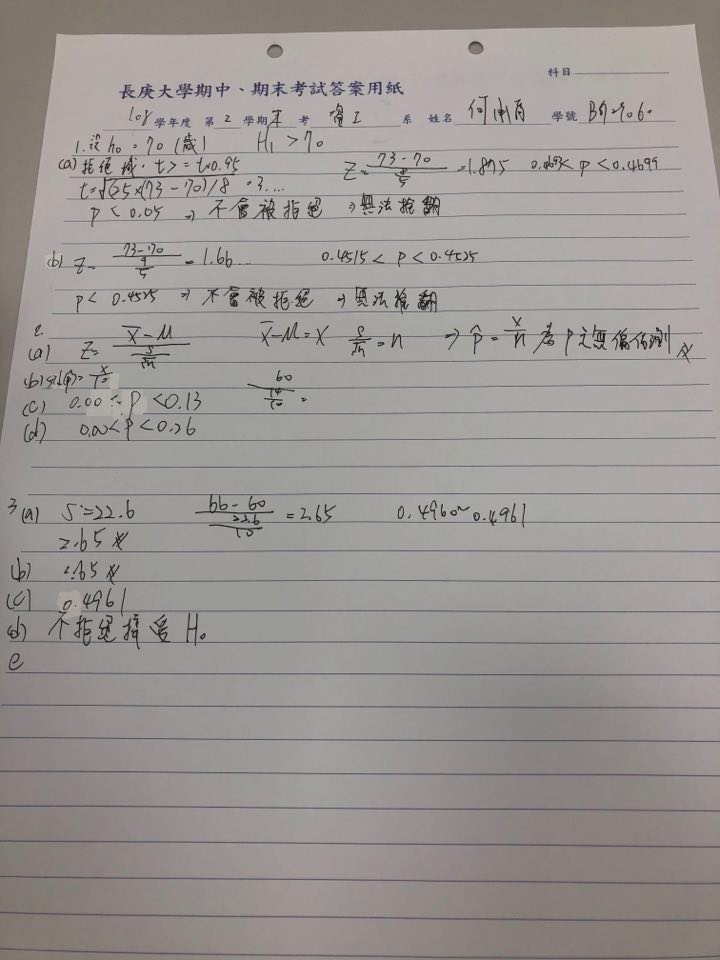 科目
長庚大學期中、期末考試答案用紙
108 學年度 第 2 學期 末 考 資工 系 姓名 何 學號
1. 設 h₀ = 70 (歲) H₁ > 70
(a) 拒絕域: t >= t0.95 Z = (73-70)/(8/5) = 1.875 0.4693 < P < 0.4699
t = √25 x (73-70)/8 = 3....
P < 0.05 => 不會被拒絕 => 無法推翻
(b) Z = (73-70)/(9/5) = 1.66... 0.4515 < P < 0.4525
P < 0.4525 => 不會被拒絕 => 無法推翻
2.
(a) Z = (X̄-M)/(S/√n) X̄-M = X S/√n = n => p̂ = X/n 為 P 之無偏估測
(b) (p̂) = X/10
(c) 0.00 < P < 0.13 60/(14/10) =
(d) 0.00 < P < 0.26
3 (a) S = 22.6 (66-60)/(22.6/10) = 2.65 0.4960~0.4961
2.65
(b) 2.65
(c) 0.4961
(d) 不拒絕接受 H₀
e